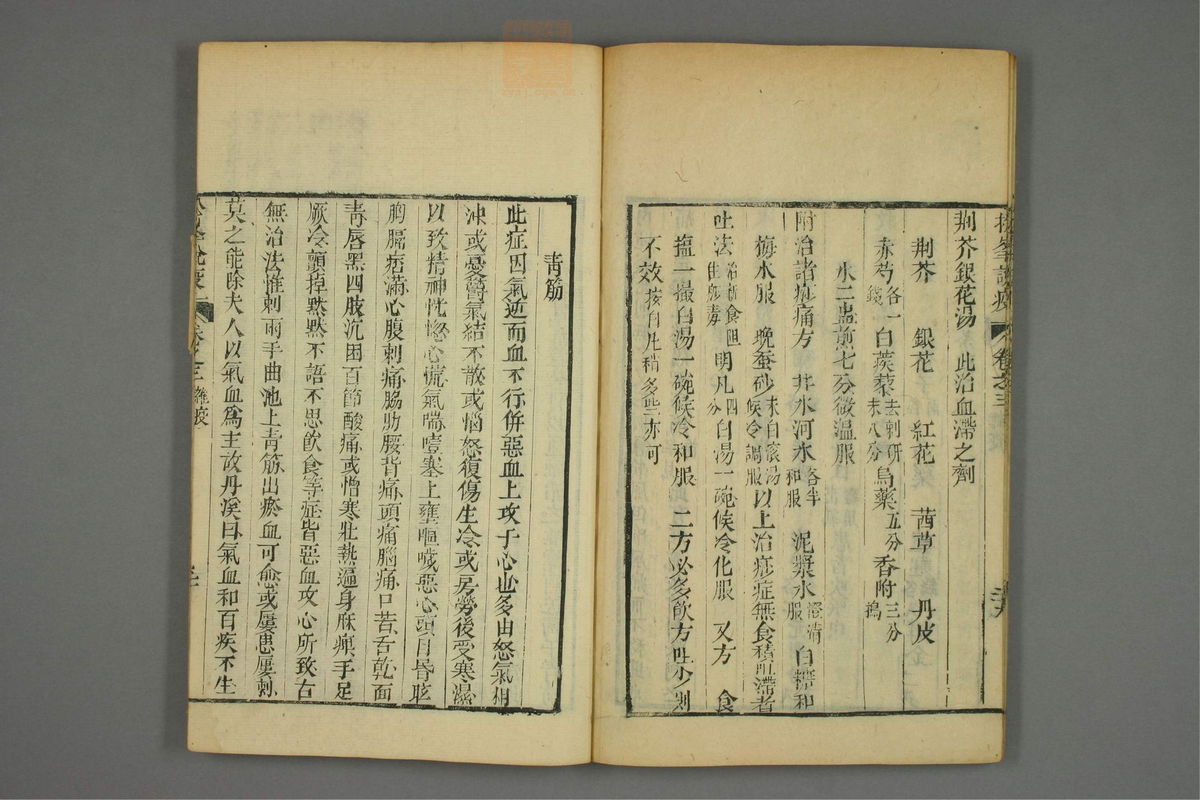 松峯說疫 卷之三
荆芥銀花湯 此治血滯之劑
荆芥 銀花 紅花 茜草 丹皮
赤芍各一錢 白蒺藜去刺研末八分 烏藥五分 香附三分
水二盅煎七分微溫服
附治諸痧痛方 井水河水各半和服 泥漿水澄清服 白礬和
梅水服 晚蚕砂末白滾湯候冷調服 以上治痧症無食積血滯者
吐法 明凡四分白湯一碗候冷化服 又方 食
塩一撮白湯一碗候冷和服 二方必多飲方吐少則
不效按白凡稍多些亦可
青筋
此症因氣逆而血不行併惡血上攻于心也多由怒氣相
沖或憂鬱氣結不散或惱怒復傷生冷或房勞後受寒濕
以致精神恍惚心慌氣喘噎塞上壅嘔噦惡心頭目昏眩
胸膈痞滿心腹刺痛脇肋腰背痛頭痛腦痛口苦舌乾面
青唇黑四肢沉困百節酸痛或憎寒壯熱遍身麻痺手足
厥冷顫掉默默不語不思飲食等症皆惡血攻心所致古
無治法惟刺兩手曲池上青筋出瘀血可愈或屢患屢刺
莫之能除夫人以氣血爲主故丹溪曰氣血和百疾不生
卷之三雜疫